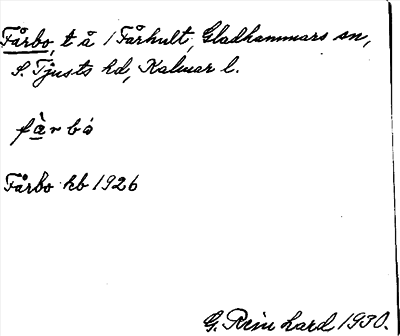 Fårbo, t å 1 Fårhult, Gladhammars sn,
S. Tjusts hd, Kalmar l.
fà̱rbó
Fårbo kb 1926
G. Reinhard 1930.